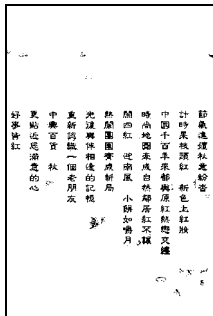 節氣遞嬗秋意紛沓
計時果枝頭紅　新色上紅妝
中圓千百年來都與原紅熱戀交纏
時尚地圖柔成自然鄰居紅不讓
閤四紅　迎南風　小餅如嚼月
熱鬧團圓寶成新局
光復興伴相逢的記憶
重新認識一個老朋友
中興百貨　秋
更貼近您滿意的心
好事皆紅